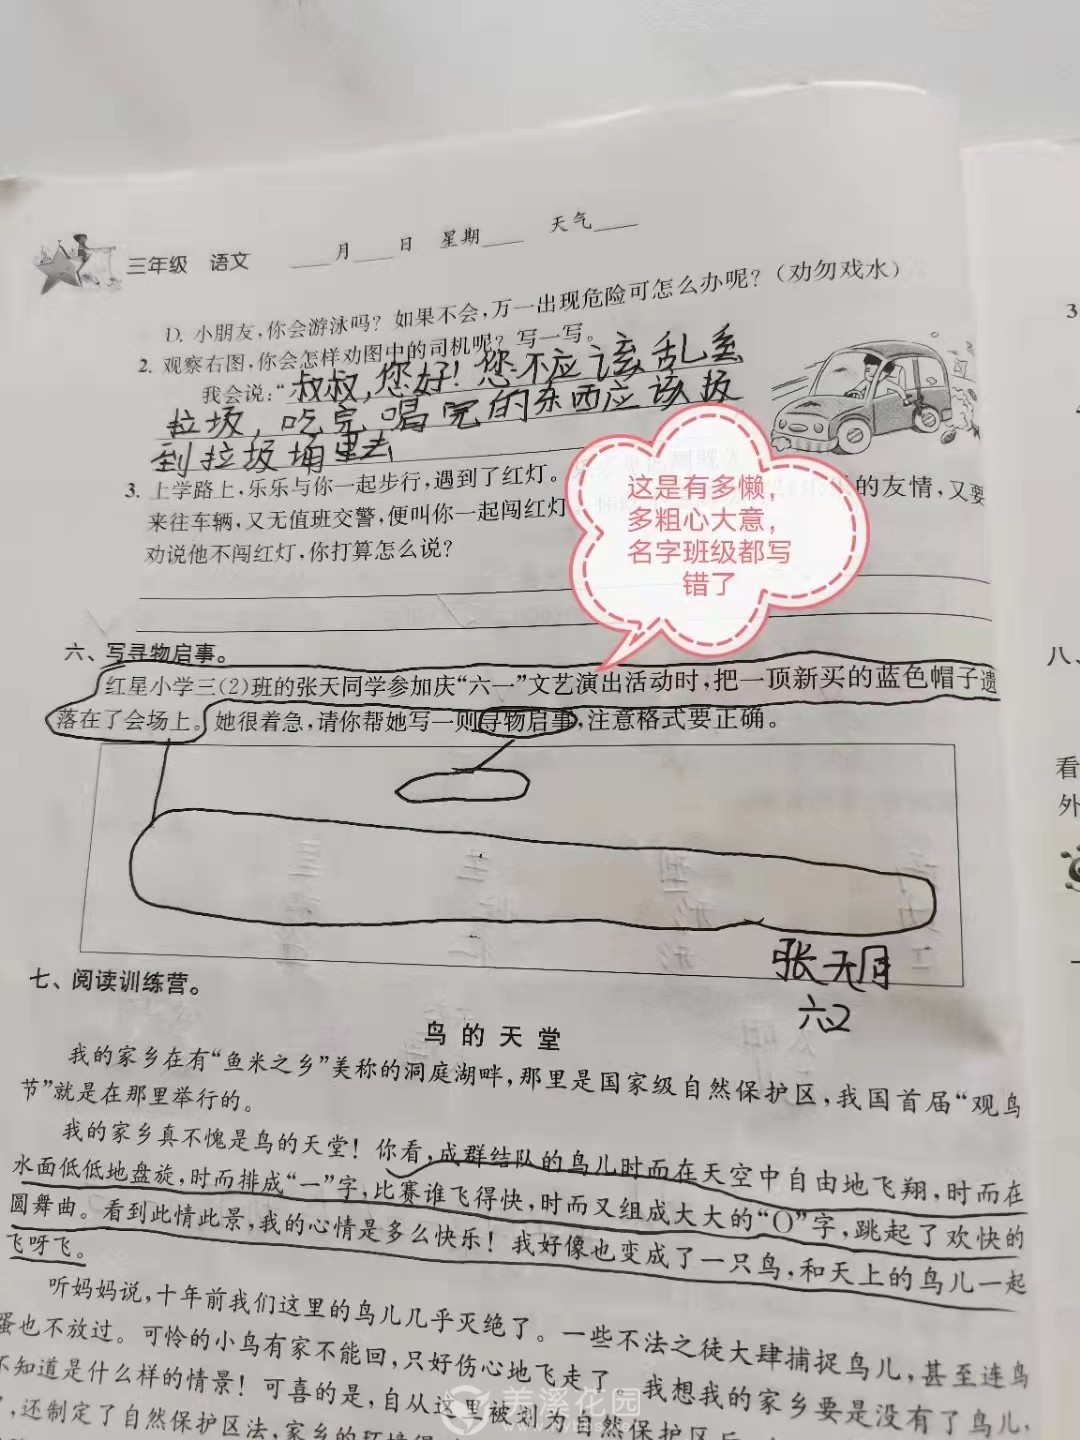 三年级 语文 ____月____日 星期____ 天气____
D. 小朋友,你会游泳吗?如果不会,万一出现危险可怎么办呢?(劝勿戏水)
2. 观察右图,你会怎样劝图中的司机呢?写一写。
我会说:“叔叔,您好!您不应该乱丢
垃圾,吃完喝完的东西应该扔
到垃圾桶里去
3. 上学路上,乐乐与你一起步行,遇到了红灯。
的友情,又要
来往车辆,又无值班交警,便叫你一起闯红灯
劝说他不闯红灯,你打算怎么说?
这是有多懒,
多粗心大意,
名字班级都写
错了
六、写寻物启事。
红星小学三(2)班的张天同学参加庆“六一”文艺演出活动时,把一顶新买的蓝色帽子遗
落在了会场上。她很着急,请你帮她写一则寻物启事,注意格式要正确。
张天月
六2
七、阅读训练营。
鸟的天堂
我的家乡在有“鱼米之乡”美称的洞庭湖畔,那里是国家级自然保护区,我国首届“观鸟
节”就是在那里举行的。
我的家乡真不愧是鸟的天堂!你看,成群结队的鸟儿时而在天空中自由地飞翔,时而在
水面低低地盘旋,时而排成“一”字,比赛谁飞得快,时而又组成大大的“O”字,跳起了欢快的
圆舞曲。看到此情此景,我的心情是多么快乐!我好像也变成了一只鸟,和天上的鸟儿一起
飞呀飞。
听妈妈说,十年前我们这里的鸟儿几乎灭绝了。一些不法之徒大肆捕捉鸟儿,甚至连鸟
蛋也不放过。可怜的小鸟有家不能回,只好伤心地飞走了。我想我的家乡要是没有了鸟儿,
不知道是什么样的情景!可喜的是,自从这里被划为自然保护区后
,还制定了自然保护区法,家乡的环境得
3
八、
看
外
美溪花园